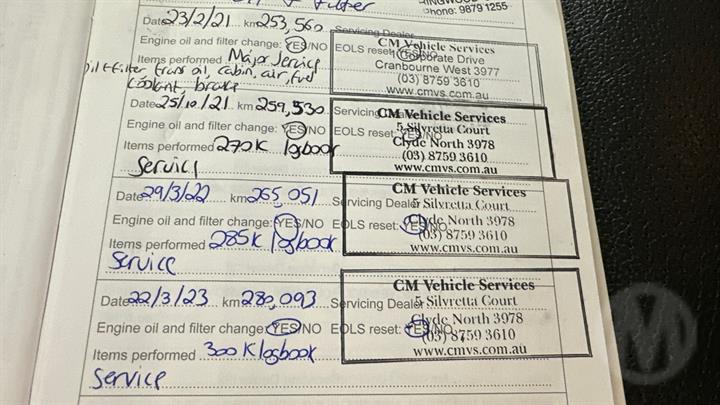 + Filter
Phone: 9879 1255
Date 23/2/21 km 253,560 Servicing Dealer
CM Vehicle Services
Engine oil and filter change: YES/NO EOLS reset: YES/NO
Corporate Drive
Items performed Major Service
Cranbourne West 3977
oil+filter trans oil, cabin, air, fuel
(03) 8759 3610
coolant, brake
www.cmvs.com.au
Date 25/10/21 km 259,530 Servicing Dealer
CM Vehicle Services
5 Silvretta Court
Engine oil and filter change: YES/NO EOLS reset: YES/NO
Clyde North 3978
Items performed 270K logbook
(03) 8759 3610
Service
www.cmvs.com.au
Date 29/3/22 km 265,051 Servicing Dealer
CM Vehicle Services
5 Silvretta Court
Engine oil and filter change: YES/NO EOLS reset: YES/NO
Clyde North 3978
Items performed 285K logbook
(03) 8759 3610
Service
www.cmvs.com.au
Date 22/3/23 km 280,093 Servicing Dealer
CM Vehicle Services
5 Silvretta Court
Engine oil and filter change: YES/NO EOLS reset: YES/NO
Clyde North 3978
(03) 8759 3610
Items performed 300K logbook
www.cmvs.com.au
Service